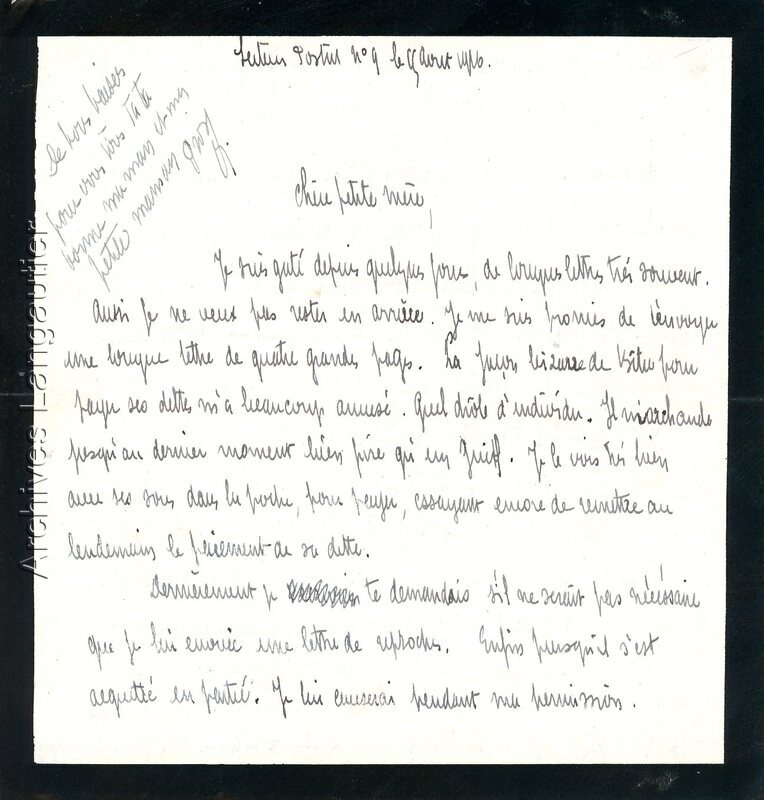 Secteur Postal n° 9 le Août 1916.
de bons baisers
pour vous tous Tata
bonne maman et ma
petite maman
Chère petite mère,
Je suis gaté depuis quelques jours, de longues lettres très souvent.
Aussi je ne veux pas rester en arrière. Je me suis promis de t'envoyer
une longue lettre de quatre grandes pages. La façon bizarre de pour
payer ses dettes m'a beaucoup amusé. Quel drôle d'individu. Il marchande
jusqu'au dernier moment bien pire qu'un Juif. Je le vois très bien
avec ses sous dans la poche, pour payer, essayant encore de remettre au
lendemain le paiement de sa dette.
Dernièrement je te demandais s'il ne serait pas nécéssaire
que je lui envoie une lettre de reproches. Enfin puisqu'il s'est
acquitté en partie. Je lui causerai pendant ma permission.
Archives Langautier